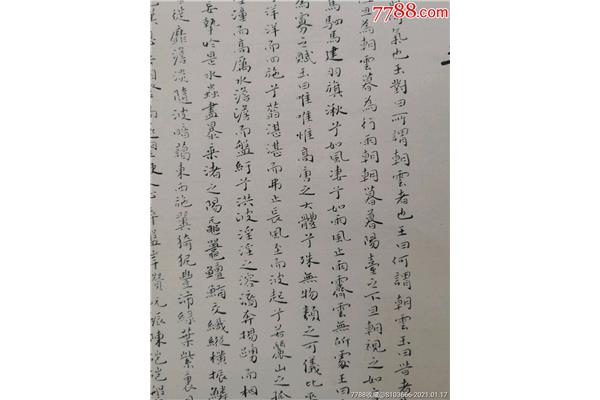 7788.com
氣也玉對曰所謂朝雲者也王曰何謂朝雲玉曰昔者
旦為朝雲暮為行雨朝朝暮暮陽臺之下旦朝視之如
駟馬建羽旗湫兮如風凄兮如雨風止雨霽雲無所處王曰
為寡之賦玉曰唯唯惟高唐之大體兮殊無物類之可儀比
洋洋而四施兮蓊湛湛而弗止長風至而波起兮若麗山之孤
潼而高厲水澹澹而盤紆兮洪波淫淫之溶㵝奔揚踴而相
水蟲盡暴乘渚之陽黿鼉鱣鮪交織縱橫振鱗
從靡澹淡隨波闇藹東西施翼猗狔豐沛綠葉紫裹
振陳磑磑
7788收藏@S103666-2021.01.17